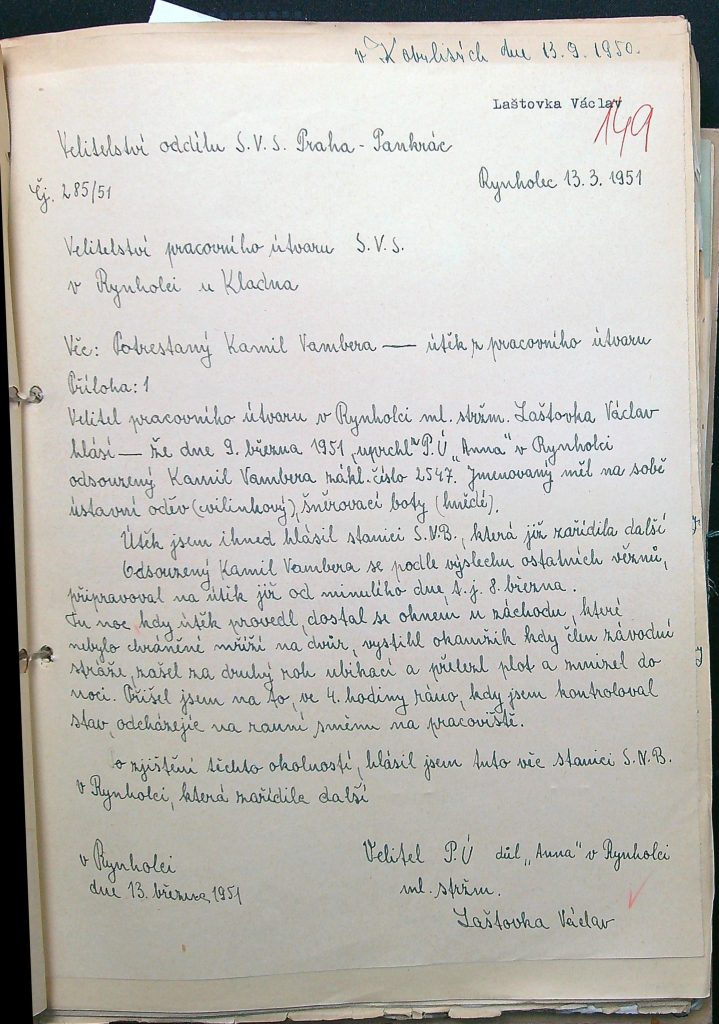 v Kobylisích dne 13.9.1950.
Laštovka Václav
149
Velitelství oddílu S.V.S. Praha - Pankrác
Čj. 285/51
Rynholec 13.3.1951
Velitelství pracovního útvaru S.V.S.
v Rynholci u Kladna
Věc: Potrestaný Kamil Vambera — útěk z pracovního útvaru
Příloha: 1
Velitel pracovního útvaru v Rynholci ml. stržm. Laštovka Václav
hlásí — že dne 9. března 1951 uprchl z P.Ú „Anna" v Rynholci
odsouzený Kamil Vambera zákl. číslo 2547. Jmenovaný měl na sobě
ústavní oděv (cvilinkový), šněrovací boty (hnědé).
Útěk jsem ihned hlásil stanici S.N.B., která již zařídila další
Odsouzený Kamil Vambera se podle výslechu ostatních vězňů,
připravoval na útěk již od minulého dne, t.j. 8. března.
Tu noc, kdy útěk provedl, dostal se oknem u záchodu, které
nebylo chráněné mříží na dvůr, vystihl okamžik kdy člen závodní
stráže, zašel za druhý roh ubikací a přelezl plot a zmizel do
noci. Přišel jsem na to, ve 4. hodiny ráno, kdy jsem kontroloval
stav, odcházejíc na ranní směnu na pracoviště.
o zjištění těchto okolností, hlásil jsem tuto věc stanici S.N.B.
v Rynholci, která zařídila další
v Rynholci
dne 13. března, 1951
Velitel P.Ú důl „Anna" v Rynholci
ml. stržm.
Laštovka Václav